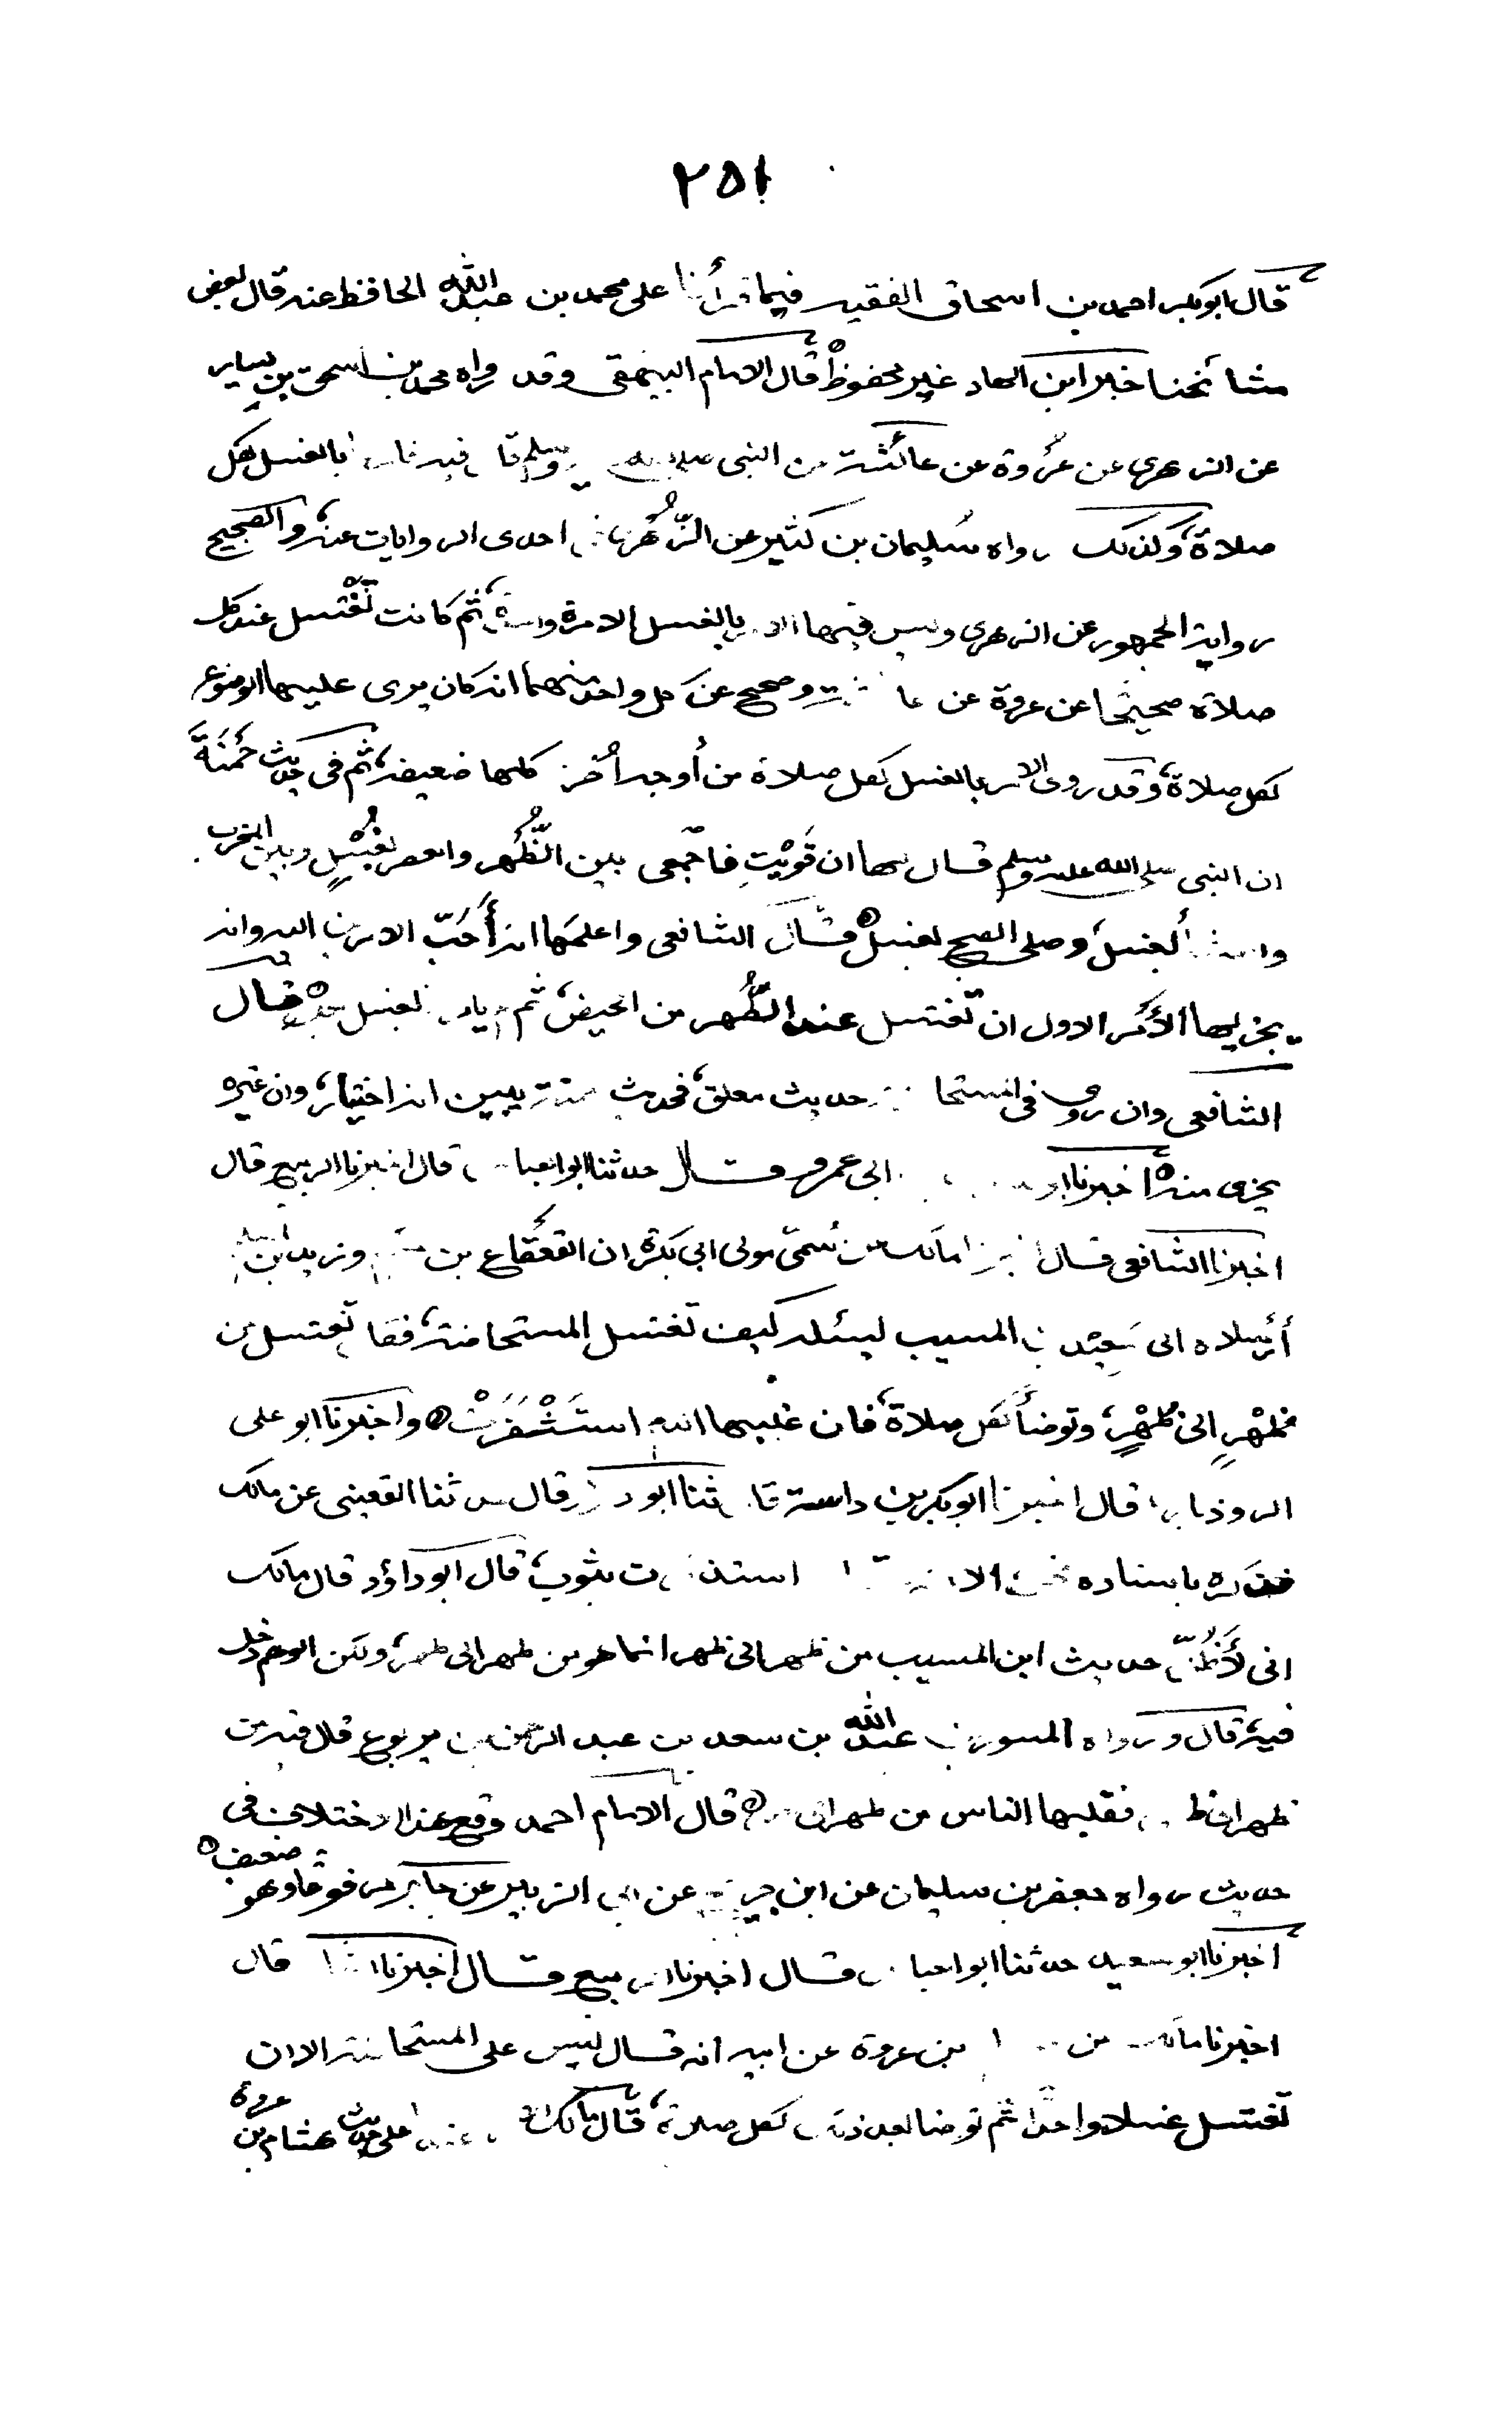 ٢٥١
قال ابو بكر احمد بن اسحاق الفقيه فيما قرأنا على محمد بن عبد الله الحافظ عنه قال بعض
مشائخنا خبر ابن الهاد غير محفوظ قال الامام البيهقى وقد رواه محمد بن اسحق بن يسار
عن الزهرى عن عُروة عن عائشة عن النبى وسلم فيه بالغسل لكل
صلاة، وكذلك رواه سُليمان بن كثير عن الزُّهرى فى احدى الروايات عنه، والصحيح
رواية الجمهور عن الزهرى وليس فيها الامر بالغسل الا مرة واحدة، ثم كانت تَغْتسل عند كل
صلاة صحيحًا عن عروة عن وصحيح عن كل واحد منهما انه كان يرى عليها الوضوء
لكل صلاة، وقد روى الامر بالغسل لكل صلاة من أوجه أُخر كلها ضعيفة، ثم فى حديث حَمْنَةَ
ان النبى صلى الله عليه وسلم قال لها ان قَوِيْتِ فاجْمَعى بين الظُّهر والعصر بغُسْلٍ وبين المغرب
بغسل، وصلى الصبح بغسل قال الشافعى واعلمَها انه أَحَبّ الامرين اليه وانه
يجزيها الأَمر الاول ان تَغتسل عند الطُّهر من الحيض، ثم لم يامرها بغسل بعده قال
الشافعى وان روى فى المستحاضة حديث معلق، فحديث حمنة يبين انه اختيار، وان غيره
يجزى منه اخبرنا ابى عمرو قال حدثنا ابو العباس قال اخبرنا الربيع قال
اخبرنا الشافعى قال اخبرنا مالك عن سُمَىّ مولى ابى بكرة ان القَعقاع بن وزيد بن
أَرْسلاه الى سَعِيْد بن المسيب ليسئله كيف تغتسل المستحاضة، فقال تغتسل من
ظُهْرٍ الى ظُهْرٍ، وتوضأ لكل صلاة، فان غلبها الدم استَثْفَرَتْ واخبرنا ابو على
الروذبارى قال اخبرنا ابو بكر بن داسة قال ثنا ابو داود قال ثنا القعنبى عن مالك
فذكره باسناده استذفرت بثوب، قال ابو داؤد قال مالك
انى لَأَظُنّ حديث ابن المسيب من ظهر الى ظهر انما هو من طهر الى طهر، ولكن الوهم دخل
فيه، قال ورواه المسور بن عبد الله بن سعد بن عبد الرحمن بن يربوع قال فيه من
طهر الى فقلبها الناس من ظهر الى قال الامام احمد وقع هذا الاختلاف فى
حديث رواه جعفر بن سليمان عن ابن جريج عن ابى الزبير عن جابر مرفوعًا وهو ضعيف
اخبرنا ابو سعيد حدثنا ابو العباس قال اخبرنا الربيع قال اخبرنا قال
اخبرنا مالك عن بن عروة عن ابيه انه قال ليس على المستحاضة الا ان
تغتسل غسلا واحدًا ثم توضا بعد ذلك لكل صلاة، قال مالك على حديث هشام بن عروة